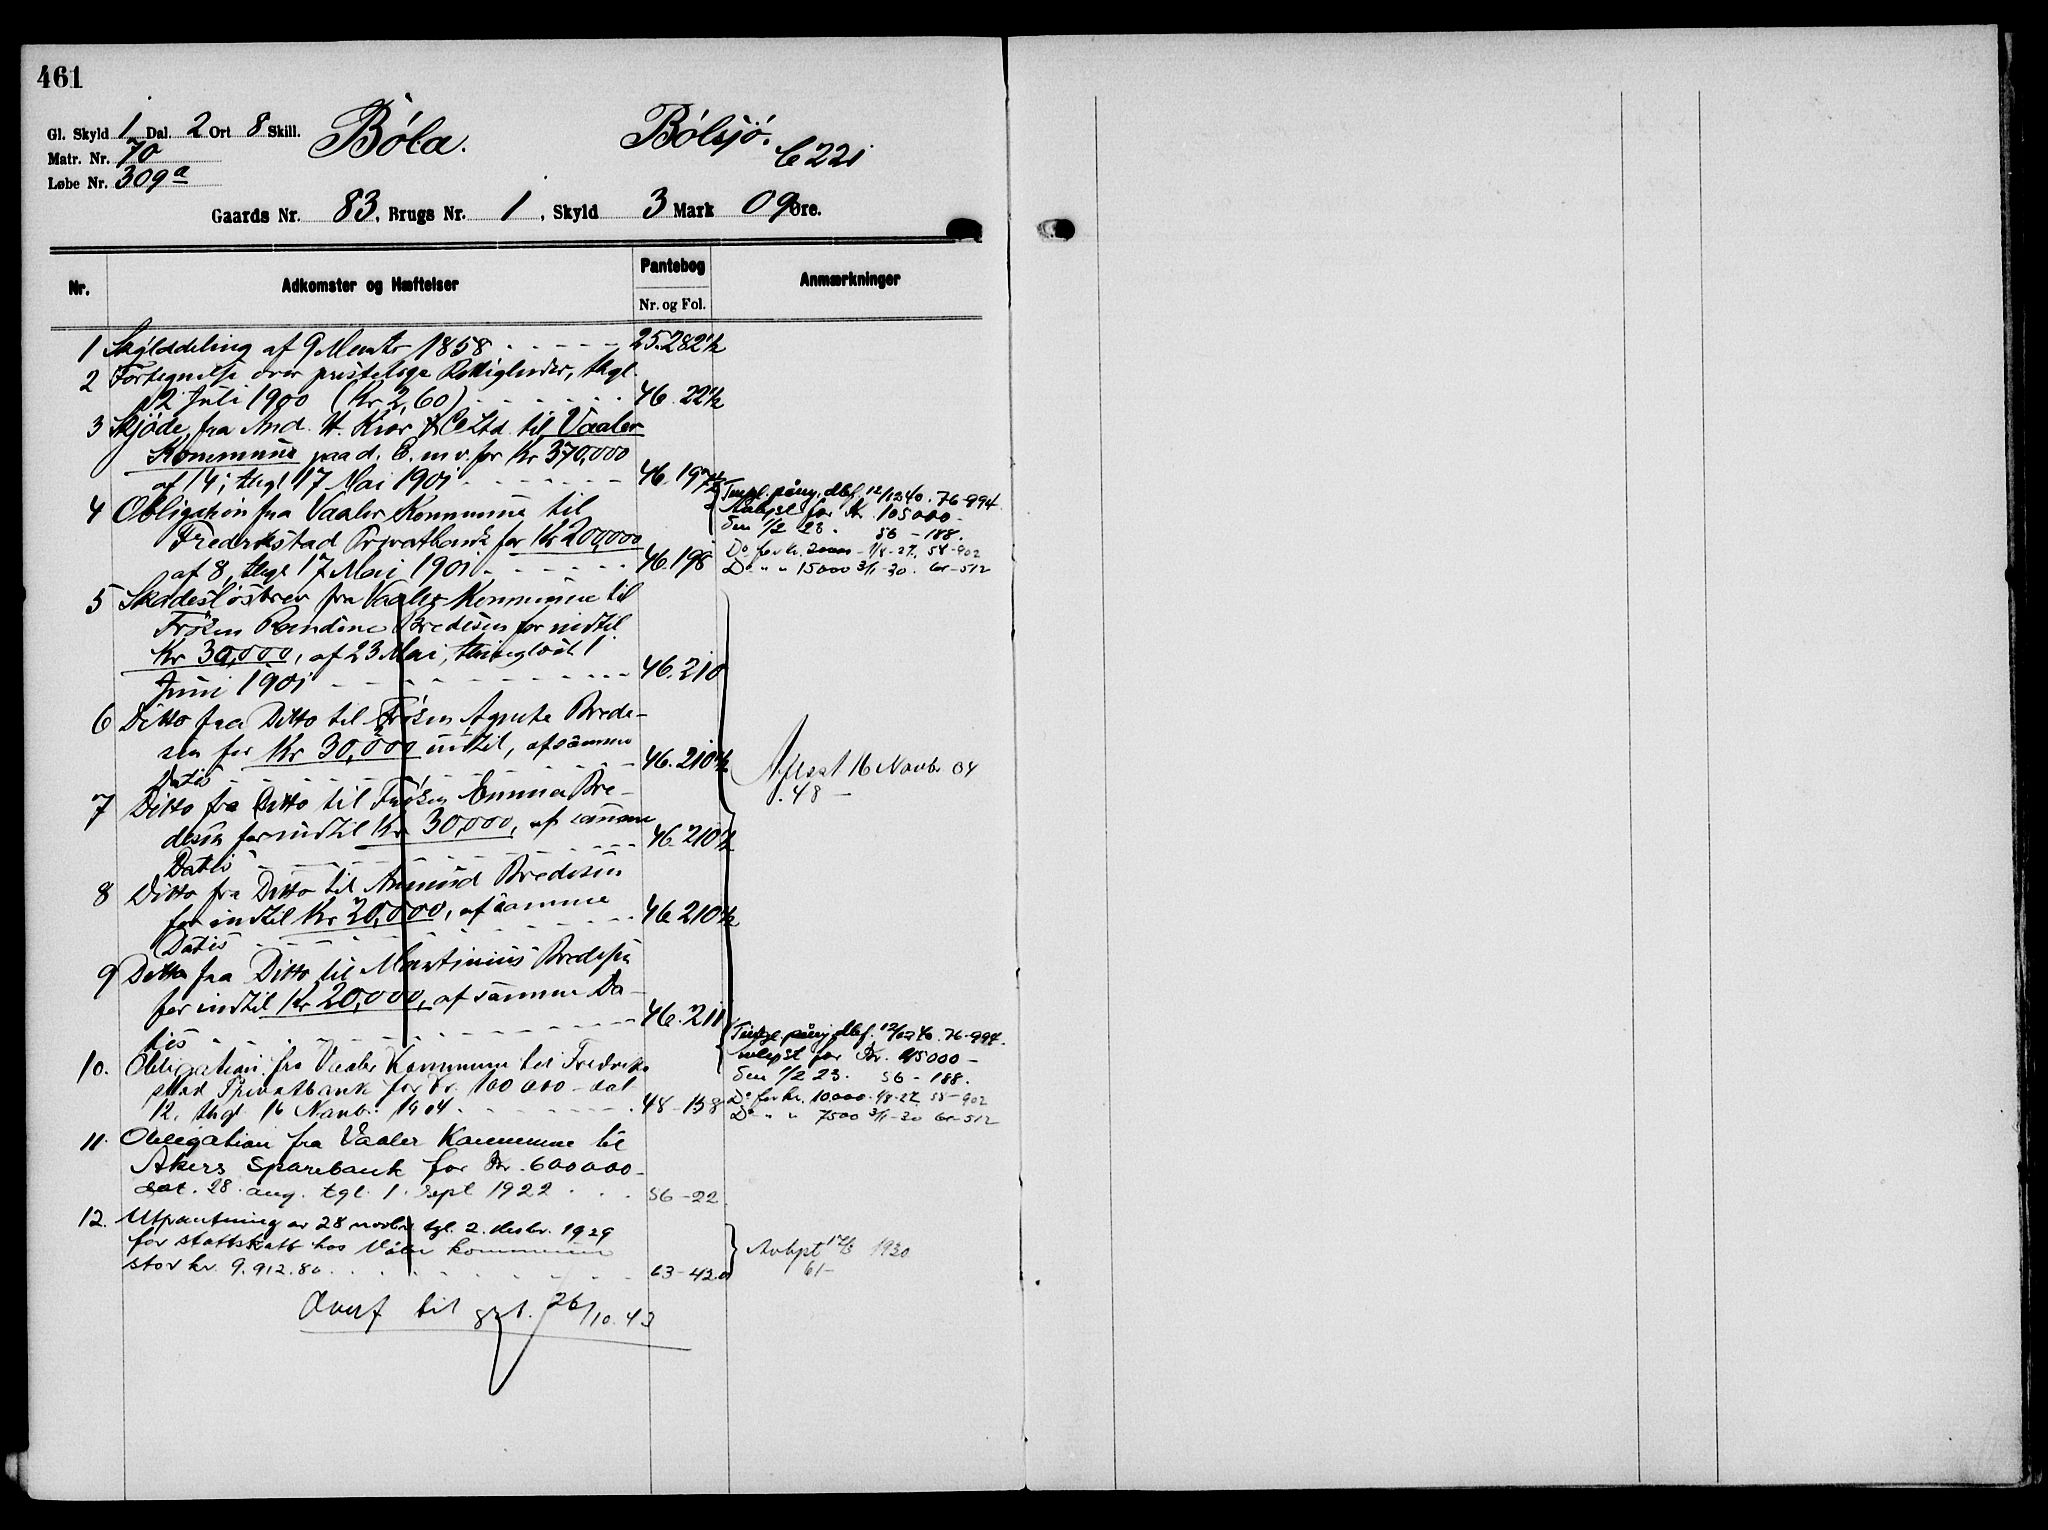 461
Gl. Skyld 1 Dal. 2 Ort 8 Skill.
Matr. Nr. 70
Løbe Nr. 309a
Bøla. Bølsjø.
Gaards Nr. 83, Brugs Nr. 1, Skyld 3 Mark 09 Øre.
Nr. Adkomster og Hæftelser Pantebog Nr. og Fol. Anmærkninger
1 Skylddeling af 9 1858 25.282½
2 Fortegnelse over Rettigheder, thgl.
2 Juli 1900 (Kr 2,60) 46.22½
3 Skjøde fra And. H. Kiær & Co Ltd. til Vaaler
Kommune paa d. E. m v. for Kr 370,000
af 14, thgl 17 Mai 1901 46.197½
4 Obligation fra Vaaler Kommune til
Fredrikstad Privatbank for Kr 200,000
af 8, thgl 17 Mai 1901 46.198
Tingl. påny, dbf. 12/12 40. 76-994
Avlyst for Kr. 105000-
den 1/2 23. 56-188.
Do for kr. 20000 - 1/8-27. 58-902
Do " " 15000 3/1-30. 61-512
5 Skadesløsbrev fra Vaaler Kommune til
Frøken Bredesen for indtil
Kr 30,000, af 23 Mai, thinglæst 1
Juni 1901 46.210
6 Ditto fra Ditto til Frøken Agnete Brede-
sen for Kr 30,000 indtil, af samme
Datis 46.210½
7 Ditto fra Ditto til Frøken Emma Bre-
desen for indtil Kr 30,000, af samme
Datis 46.210½
8 Ditto fra Ditto til Bredesen
for indtil Kr 20,000, af samme
Datis 46.210½
9 Ditto fra Ditto til Martinius Bredesen
for indtil Kr 20,000, af samme Da-
tis 46.211
Aflæst 16 Novbr 04
48-
10. Obligation fra Vaaler Kommune til Fredrik-
stad Privatbank for Kr. 100 000 - dat
12, thgl 16 Novb. 1904 48-158
Tingl. påny, dbf. 12/12 40. 76-994.
avlyst for Kr. 45000-
den 1/2 23. 56-188.
Do for kr. 10.000 - 1/8-27. 58-902
Do " " 7500 3/1-30 61-512
11. Obligation fra Vaaler Kommune til
Akers Sparebank for Kr. 600000-
dat. 28. aug. tgl. 1. sept 1922 56-22
12. Utpantning av 28 novbr. tgl. 2. desbr. 1929
for statsskatt hos Våler kommune
stor kr. 9.912.80 63-420
Avlyst 1930
61-
Overf til 26/10.43